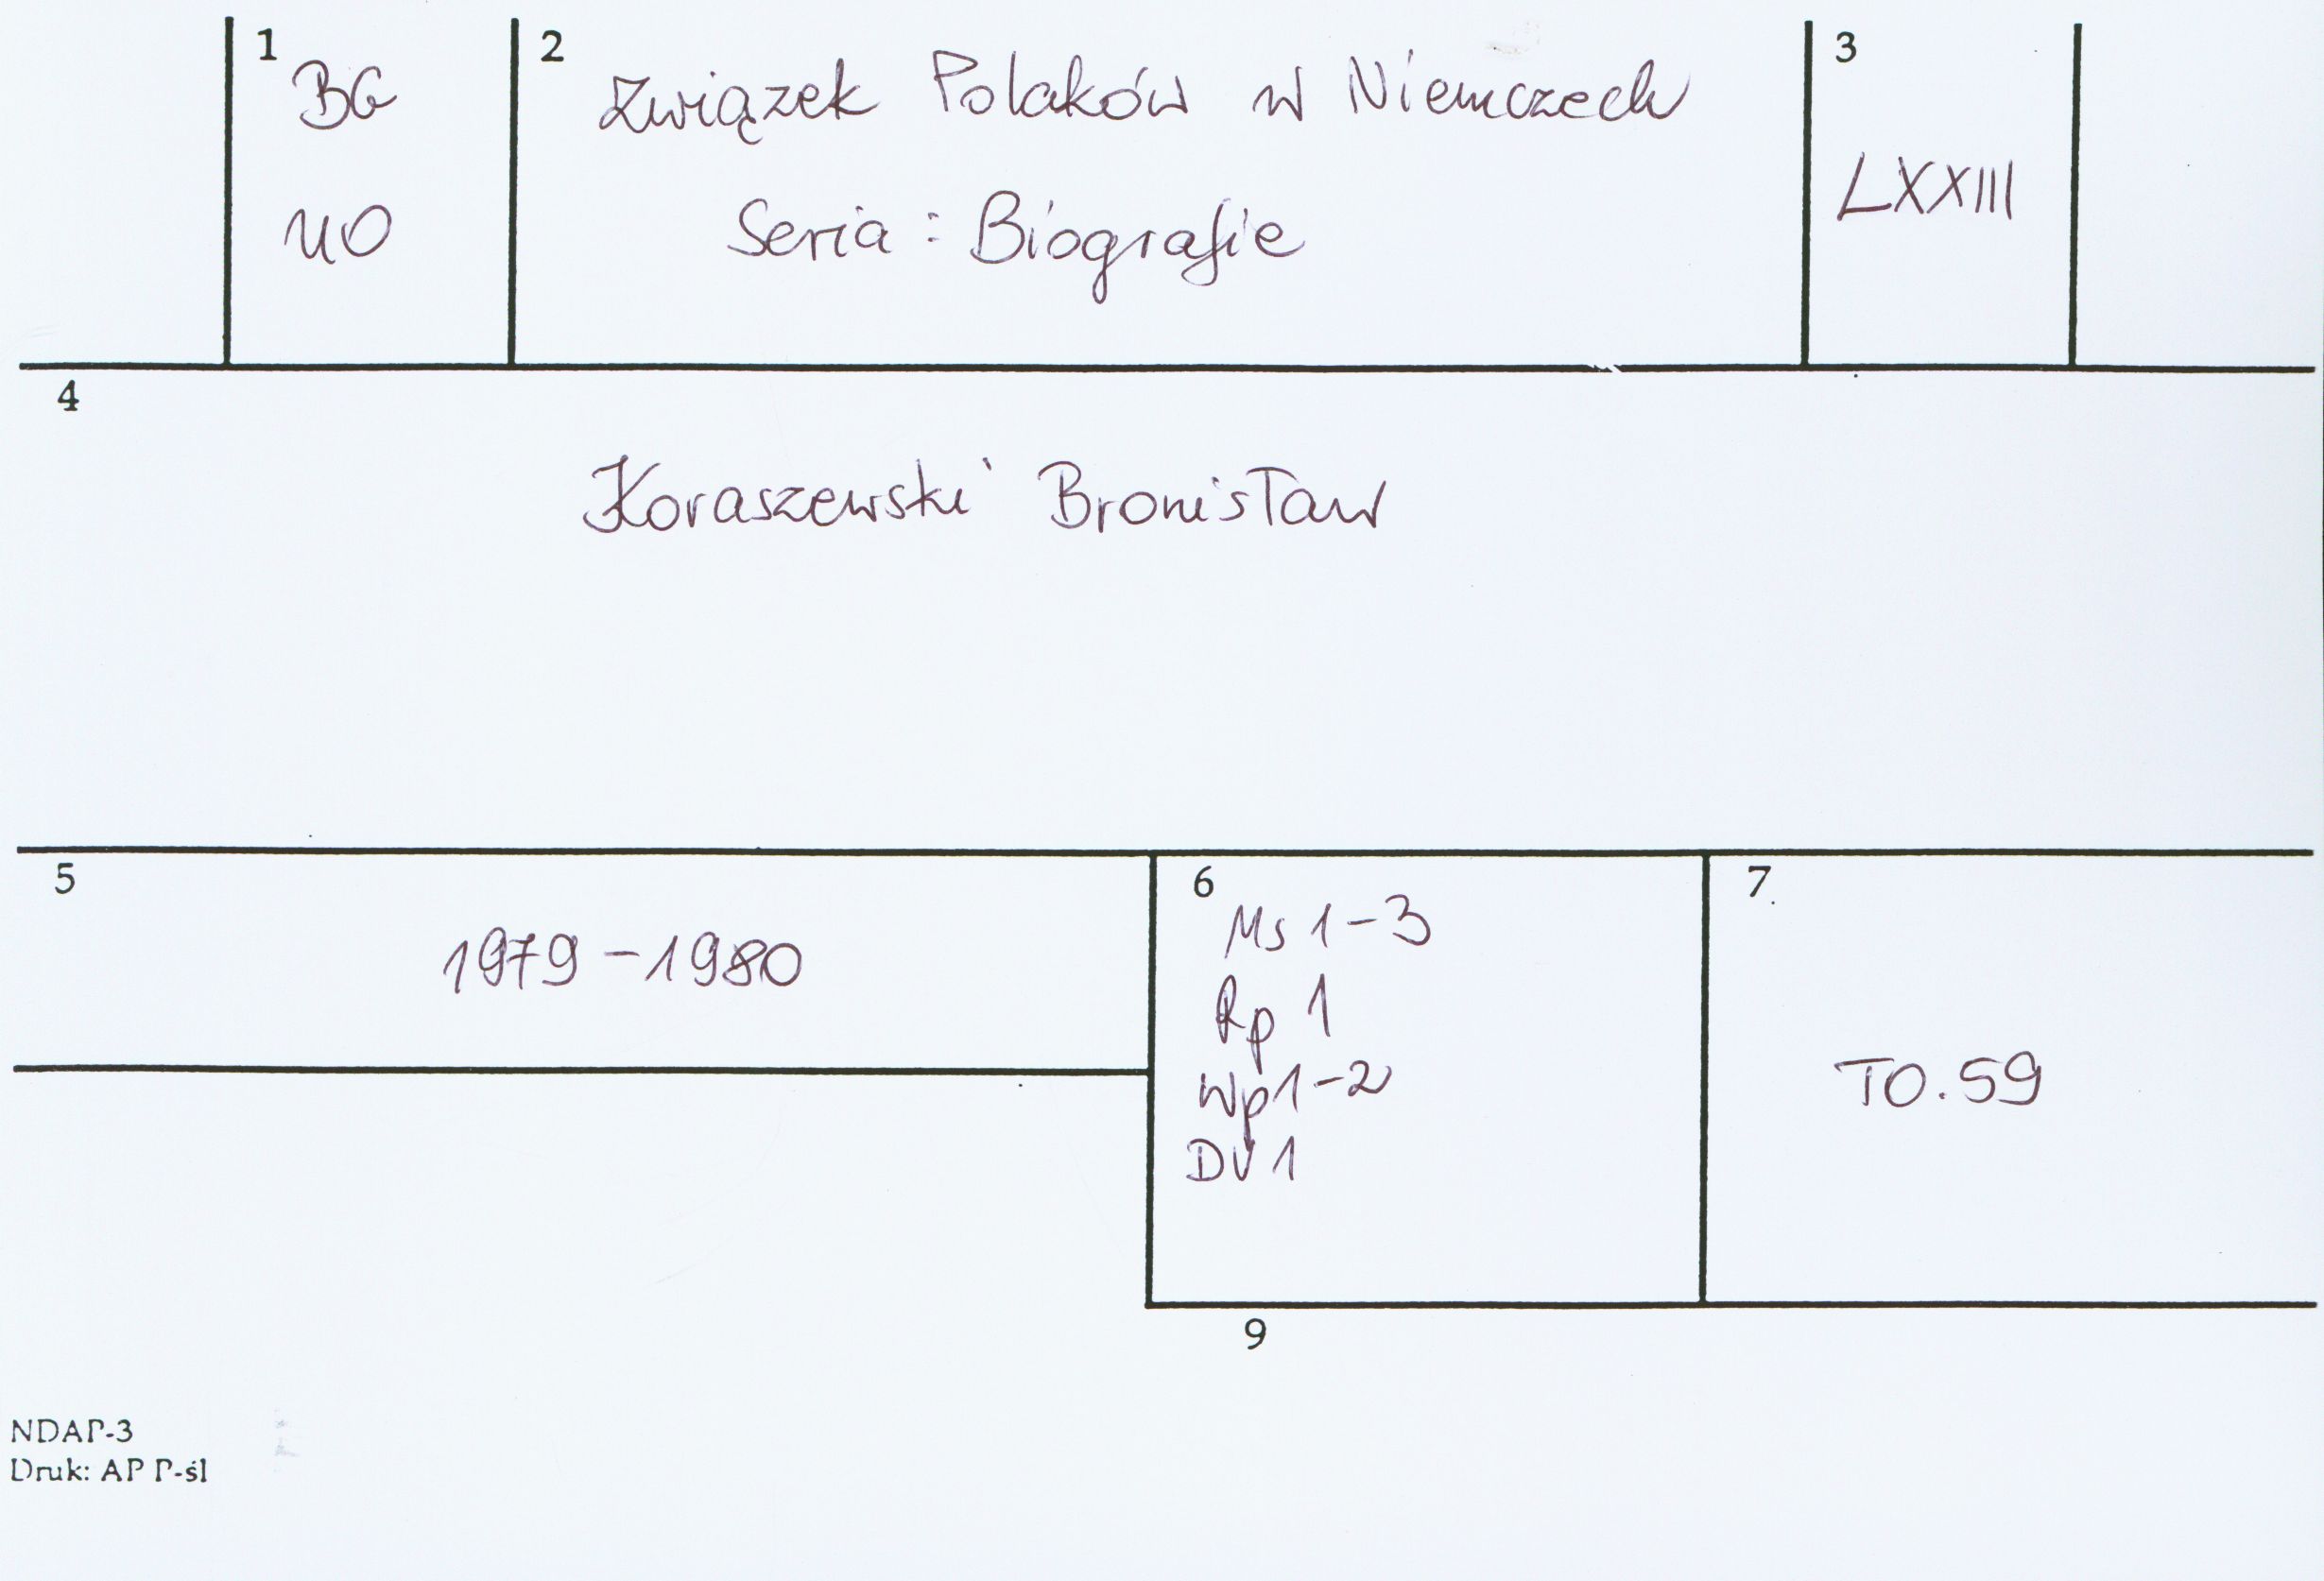 1
BG
UO
2
Związek Polaków w Niemczech
Seria: Biografie
3
LXXIII
4
Koraszewski Bronisław
5
1979-1980
6
Ms 1-3
Rp 1
Wp1-2
DV1
7
TO.59
9
NDAP-3
Druk: AP P-śl